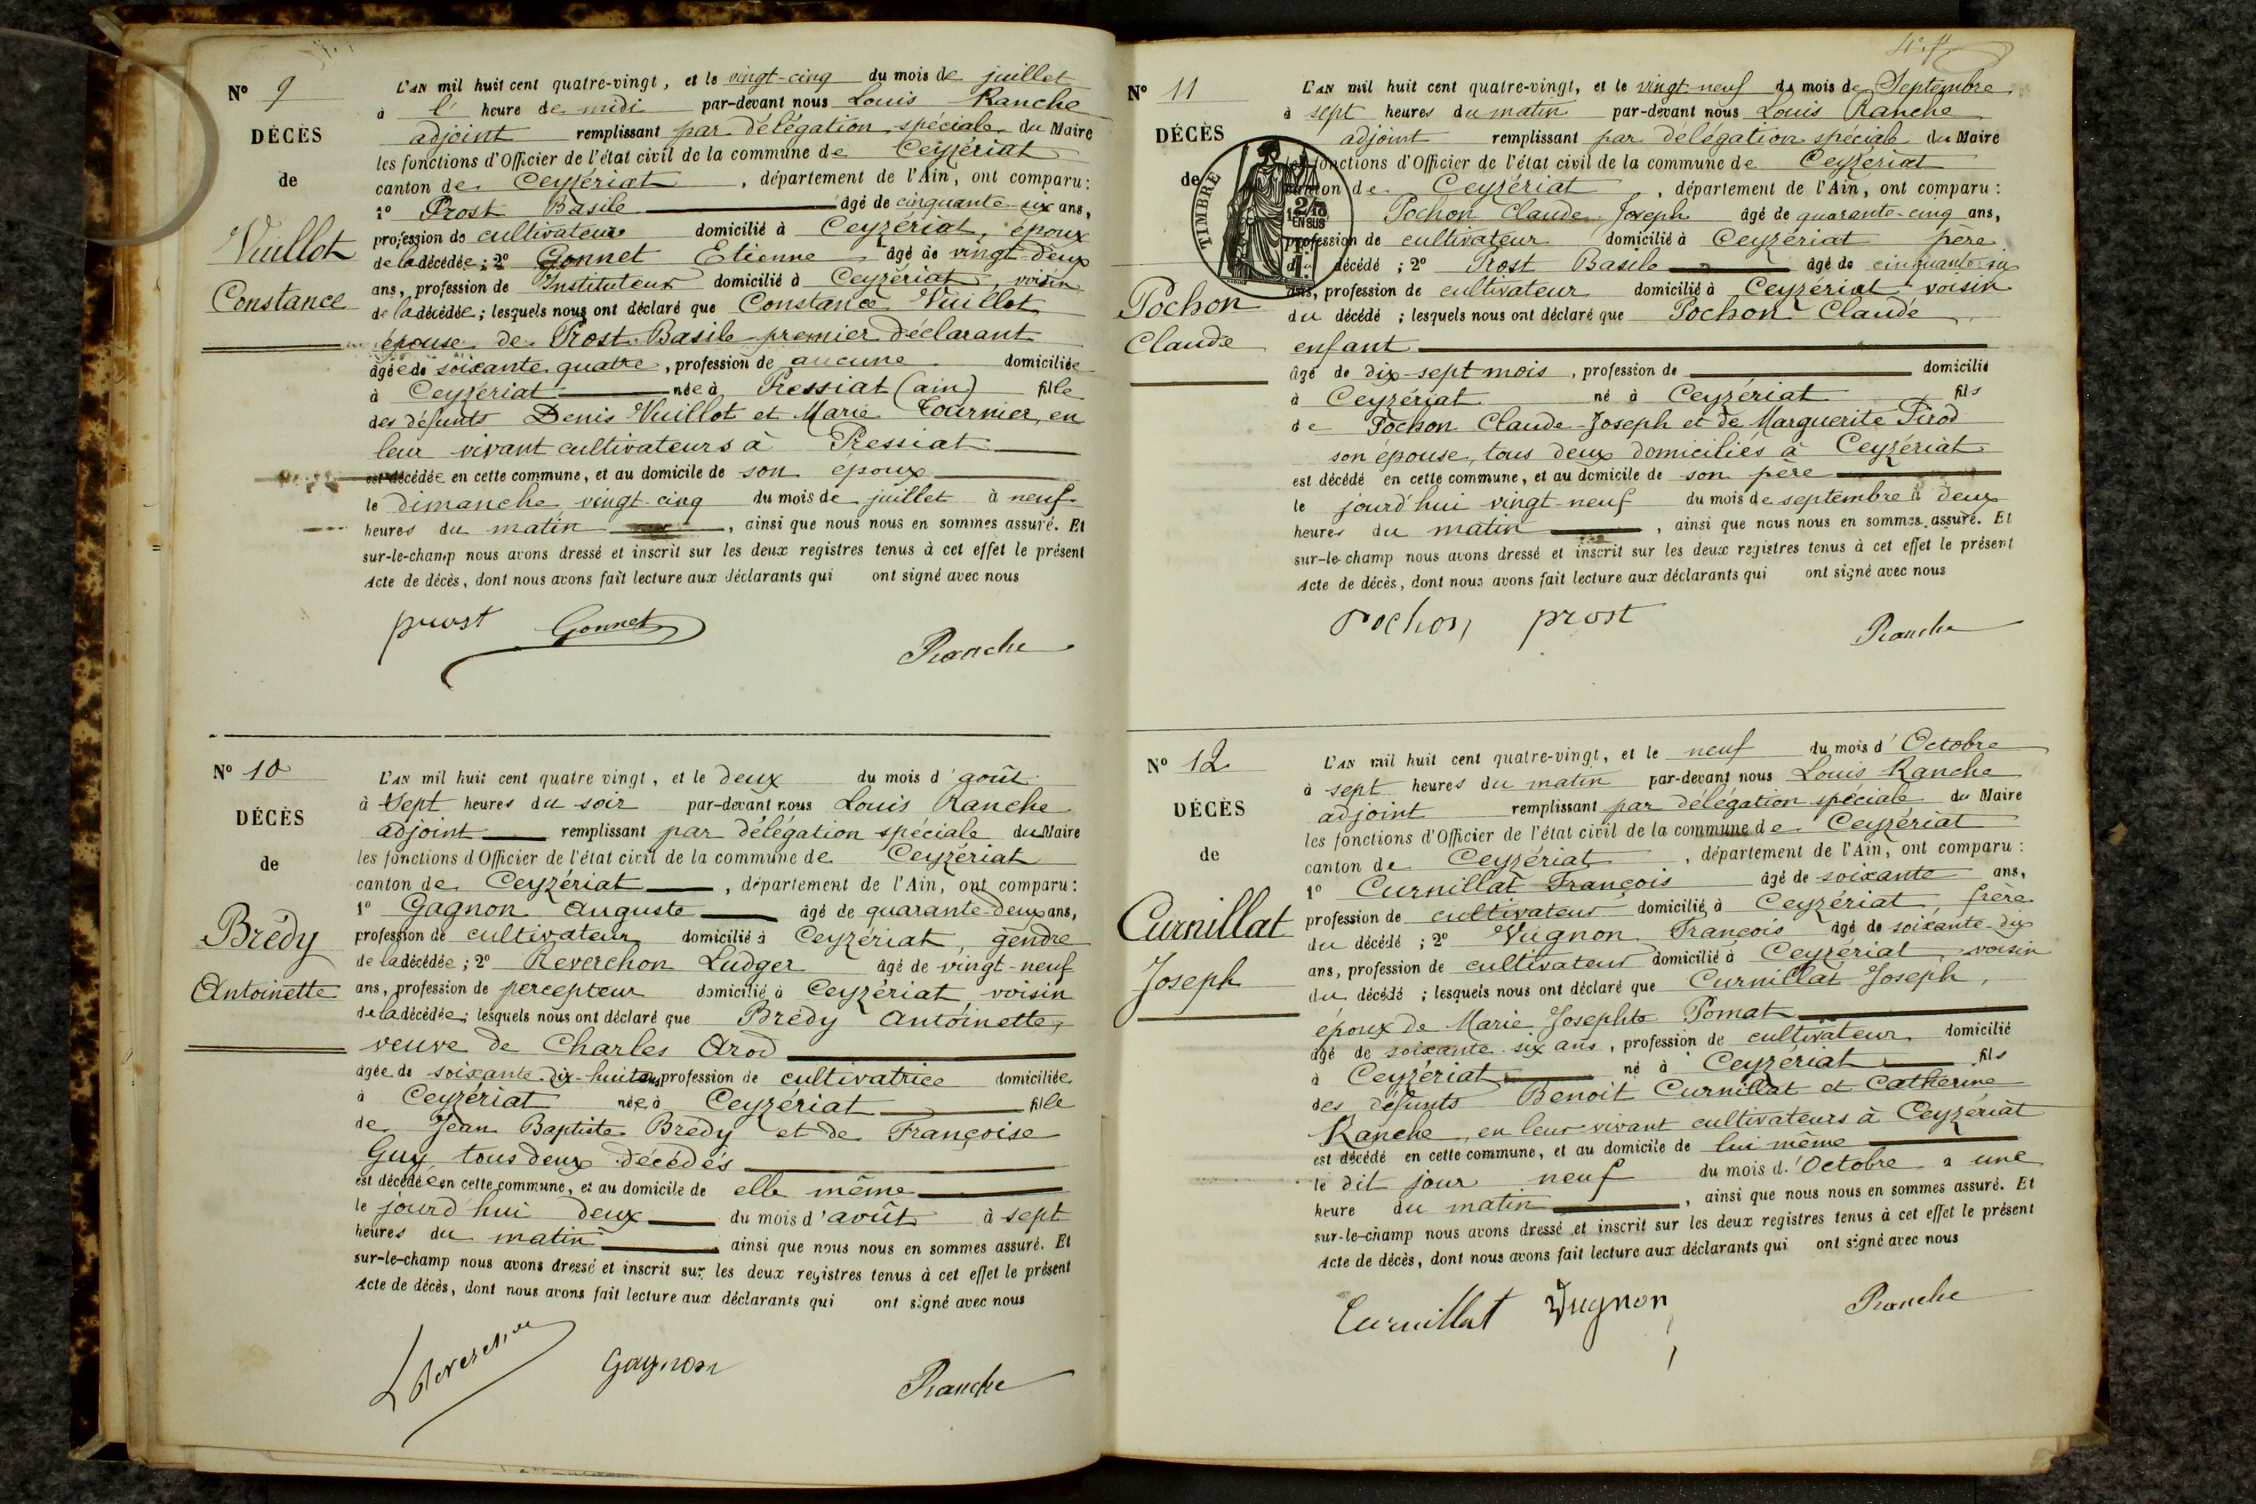 N° 9
DÉCÈS
de
Vuillot
Constance
L'AN mil huit cent quatre-vingt, et le vingt-cinq du mois de juillet
à l' heure de midi par-devant nous Louis Ranche
adjoint remplissant par délégation spéciale du Maire
les fonctions d'Officier de l'état civil de la commune de Ceyzériat
canton de Ceyzériat, département de l'Ain, ont comparu :
1° Prost Basile âgé de cinquante-six ans,
profession de cultivateur domicilié à Ceyzériat, époux
de la décédée ; 2° Gonnet Etienne âgé de vingt-deux
ans, profession de Instituteur domicilié à Ceyzériat, voisin
de la décédée ; lesquels nous ont déclaré que Constance Vuillot
épouse de Prost Basile premier déclarant
âgée de soixante quatre, profession de aucune domiciliée
à Ceyzériat née à Pressiat (ain) fille
des défunts Denis Vuillot et Marie Tournier, en
leur vivant cultivateurs à Pressiat
est décédée en cette commune, et au domicile de son époux
le dimanche vingt-cinq du mois de juillet à neuf
heures du matin, ainsi que nous nous en sommes assuré. Et
sur-le-champ nous avons dressé et inscrit sur les deux registres tenus à cet effet le présent
Acte de décès, dont nous avons fait lecture aux déclarants qui ont signé avec nous
prost Gonnet
Ranche
N° 10
DÉCÈS
de
Brédy
Antoinette
L'AN mil huit cent quatre vingt, et le deux du mois d'août
à Sept heures du soir par-devant nous Louis Ranche
adjoint remplissant par délégation spéciale du Maire
les fonctions d'Officier de l'état civil de la commune de Ceyzériat
canton de Ceyzériat, département de l'Ain, ont comparu :
1° Gagnon Auguste âgé de quarante-deux ans,
profession de cultivateur domicilié à Ceyzériat, gendre
de la décédée ; 2° Reverchon Ludger âgé de vingt-neuf
ans, profession de percepteur domicilié à Ceyzériat, voisin
de la décédée ; lesquels nous ont déclaré que Brédy Antoinette,
veuve de Charles Arod
âgée de soixante-dix-huit ans profession de cultivatrice domiciliée
à Ceyzériat née à Ceyzériat fille
de Jean Baptiste Brédy et de Françoise
Guy tous deux décédés
est décédée en cette commune, et au domicile de elle même
le jourd'hui deux du mois d'août à sept
heures du matin ainsi que nous nous en sommes assuré. Et
sur-le-champ nous avons dressé et inscrit sur les deux registres tenus à cet effet le présent
Acte de décès, dont nous avons fait lecture aux déclarants qui ont signé avec nous
L Reverchon Gagnon
Ranche
N° 11
DÉCÈS
de
TIMBRE
2/10 EN SUS
Pochon
Claude
L'AN mil huit cent quatre-vingt, et le vingt-neuf du mois de Septembre
à sept heures du matin par-devant nous Louis Ranche
adjoint remplissant par délégation spéciale du Maire
les fonctions d'Officier de l'état civil de la commune de Ceyzériat
canton de Ceyzériat, département de l'Ain, ont comparu :
Pochon Claude Joseph âgé de quarante-cinq ans,
profession de cultivateur domicilié à Ceyzériat père
du décédé ; 2° Prost Basile âgé de cinquante-six
ans, profession de cultivateur domicilié à Ceyzériat voisin
du décédé ; lesquels nous ont déclaré que Pochon Claude
enfant
âgé de dix-sept mois, profession de domicilié
à Ceyzériat né à Ceyzériat fils
de Pochon Claude-Joseph et de Marguerite Pirod
son épouse, tous deux domiciliés à Ceyzériat
est décédé en cette commune, et au domicile de son père
le jourd'hui vingt-neuf du mois de septembre à deux
heures du matin, ainsi que nous nous en sommes assuré. Et
sur-le-champ nous avons dressé et inscrit sur les deux registres tenus à cet effet le présent
Acte de décès, dont nous avons fait lecture aux déclarants qui ont signé avec nous
Pochon prost
Ranche
N° 12
DÉCÈS
de
Curnillat
Joseph
L'AN mil huit cent quatre-vingt, et le neuf du mois d'Octobre
à sept heures du matin par-devant nous Louis Ranche
adjoint remplissant par délégation spéciale du Maire
les fonctions d'Officier de l'état civil de la commune de Ceyzériat
canton de Ceyzériat, département de l'Ain, ont comparu :
1° Curnillat François âgé de soixante ans,
profession de cultivateur domicilié à Ceyzériat, frère
du décédé ; 2° Vugnon François âgé de soixante-dix
ans, profession de cultivateur domicilié à Ceyzériat, voisin
du décédé ; lesquels nous ont déclaré que Curnillat Joseph,
époux de Marie Josephte Pomat
âgé de soixante-six ans, profession de cultivateur domicilié
à Ceyzériat né à Ceyzériat fils
des défunts Benoit Curnillat et Catherine
Ranche, en leur vivant cultivateurs à Ceyzériat
est décédé en cette commune, et au domicile de lui même
le dit jour neuf du mois d'Octobre à une
heure du matin, ainsi que nous nous en sommes assuré. Et
sur-le-champ nous avons dressé et inscrit sur les deux registres tenus à cet effet le présent
Acte de décès, dont nous avons fait lecture aux déclarants qui ont signé avec nous
Curnillat Vugnon
Ranche